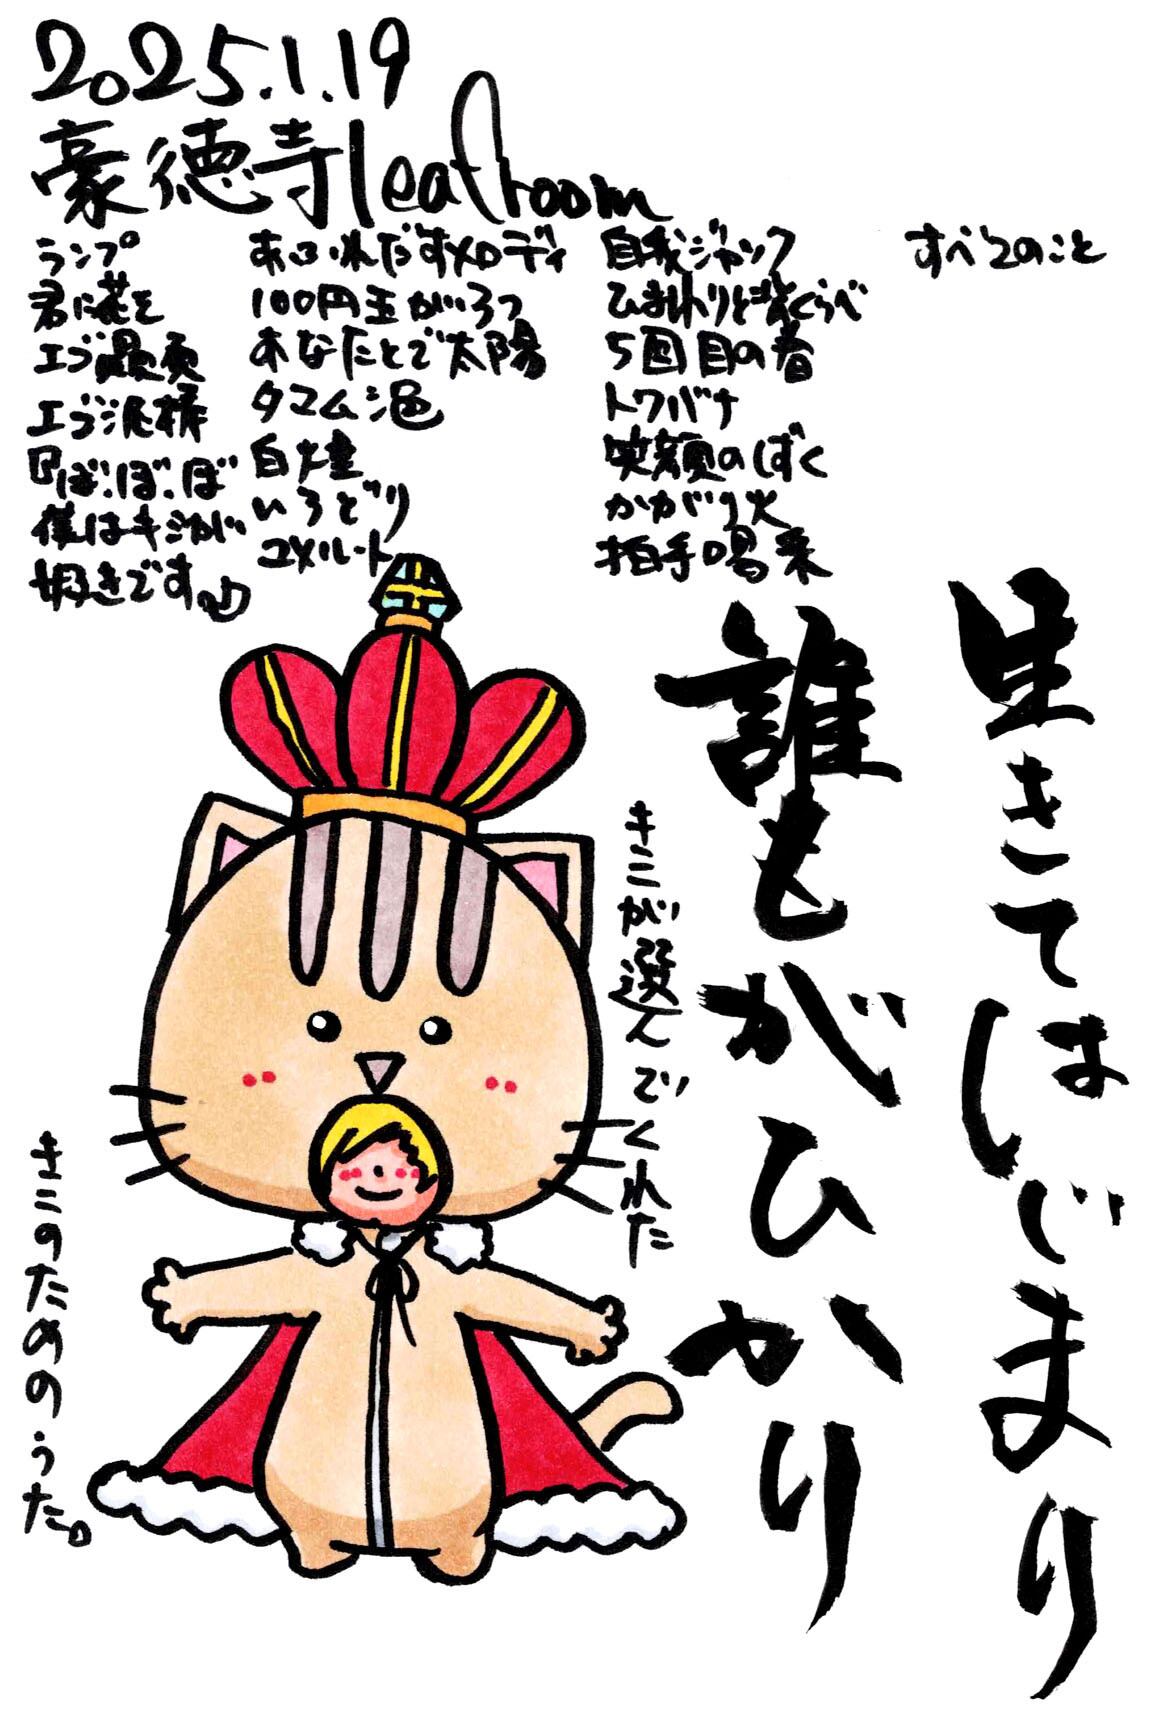 2025.1.19
豪徳寺leafroom
ランプ
君に花を
エゴ贔屓
エゴ泥棒
『ぼ、ぼ、ぼ
僕はキミが
好きです。』
あふれだすメロディ
100円玉がいろつ
あなたとで太陽
タマムシ色
自生
いろどり
ユメルート
自我ジャック
ひまわりと背くらべ
5回目の春
トワバナ
笑顔のしずく
かがり火
拍手喝采
すべてのこと
生きてはじまり
誰もがひかり
キミが選んでくれた
キミのためのうた。